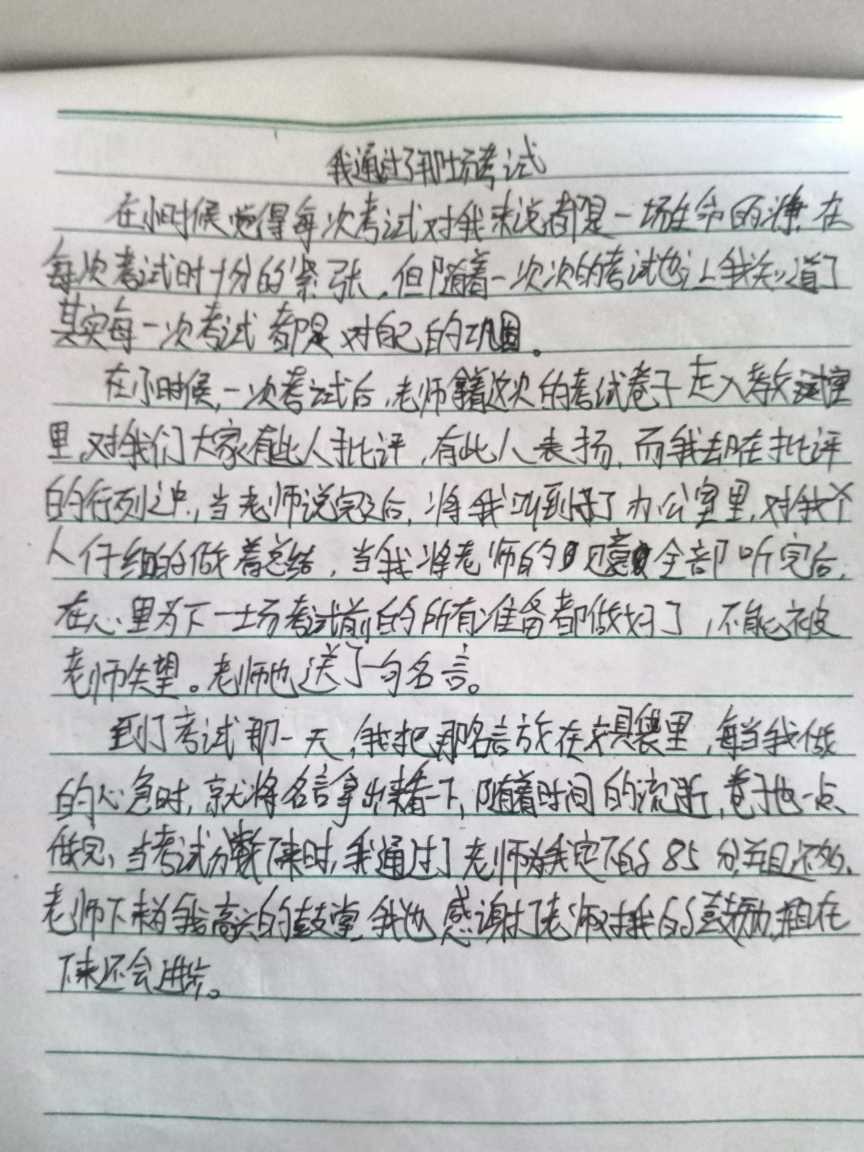 我通过了那场考试
在小时候觉得每次考试对我来说都是一场生命的 在
每次考试时十分的紧张，但随着一次次的考试也让我知道了
其实每一次考试都是对自己的巩固。
在小时候，一次考试后，老师拿着这次的考试卷子走入教室
里，对我们大家有些人批评，有些人表扬，而我却在批评
的行列之中，当老师说完之后，将我叫到了办公室里，对我个
人仔细的做着总结，当我将老师的意见全部听完后，
在心里为下一场考试前的所有准备都做好了，不能被
老师失望。老师也送了一句名言。
到了考试那一天，我把那名言放在文具袋里，每当我做
的心急时，就将名言拿出来看一下，随着时间的流逝，卷子也一点
做完，当考试分数下来时，我通过了老师为我定下的85分，并且还多，
老师下来为我高兴的鼓掌，我也感谢了老师对我的鼓励，在
下来还会进步。